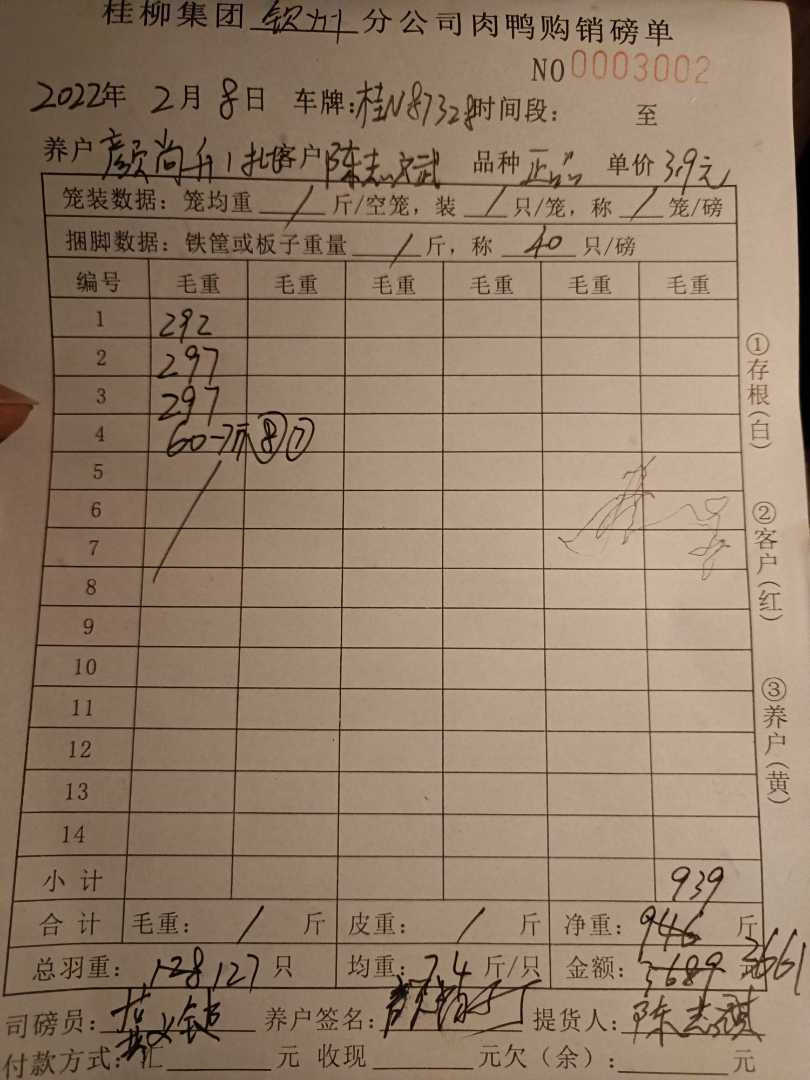 桂柳集团 钦州 分公司肉鸭购销磅单
NO 0003002
2022年 2月 8日 车牌:桂N87328 时间段: 至
养户 颜尚升 1批 客户 陈志斌 品种 正品 单价 3.9元
笼装数据: 笼均重 / 斤/空笼, 装 / 只/笼, 称 / 笼/磅
捆脚数据: 铁筐或板子重量 / 斤, 称 40 只/磅
编号 毛重 毛重 毛重 毛重 毛重 毛重
1 292
2 297
3 297
4 60-7斤 ⑧ ⑦
5
6
7
8
9
10
11
12
13
14
小计 939
合计 毛重: / 斤 皮重: / 斤 净重: 946 斤
总羽重: 128 127 只 均重: 7.4 斤/只 金额: 3689 3661
司磅员: 养户签名: 提货人: 陈志
付款方式: 汇 元 收现 元欠(余): 元
①存根(白)
②客户(红)
③养户(黄)